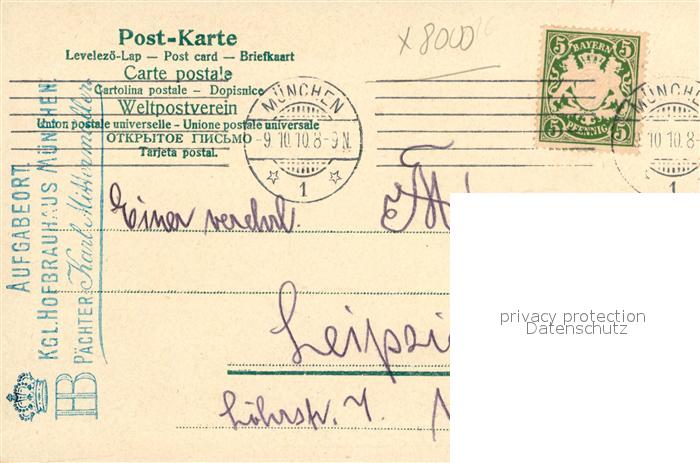 Post-Karte
Levelező-Lap — Post card — Briefkaart
Carte postale
Cartolina postale - Dopisnice
Weltpostverein
Union postale universelle - Unione postale universale
ОТКРЫТОЕ ПИСЬМО
Tarjeta postal.
x 8000
BAYERN
5 5
5 5
PFENNIG
MÜNCHEN
-9.10.10.8-9N.
1
MÜNCHEN
10.10.8-
1
AUFGABEORT.
KGL. HOFBRAUHAUS MÜNCHEN.
PÄCHTER: Karl Mittermüller
HB
Einer verehrl.
Leipzi
Löhrstr. 7.
privacy protection
Datenschutz